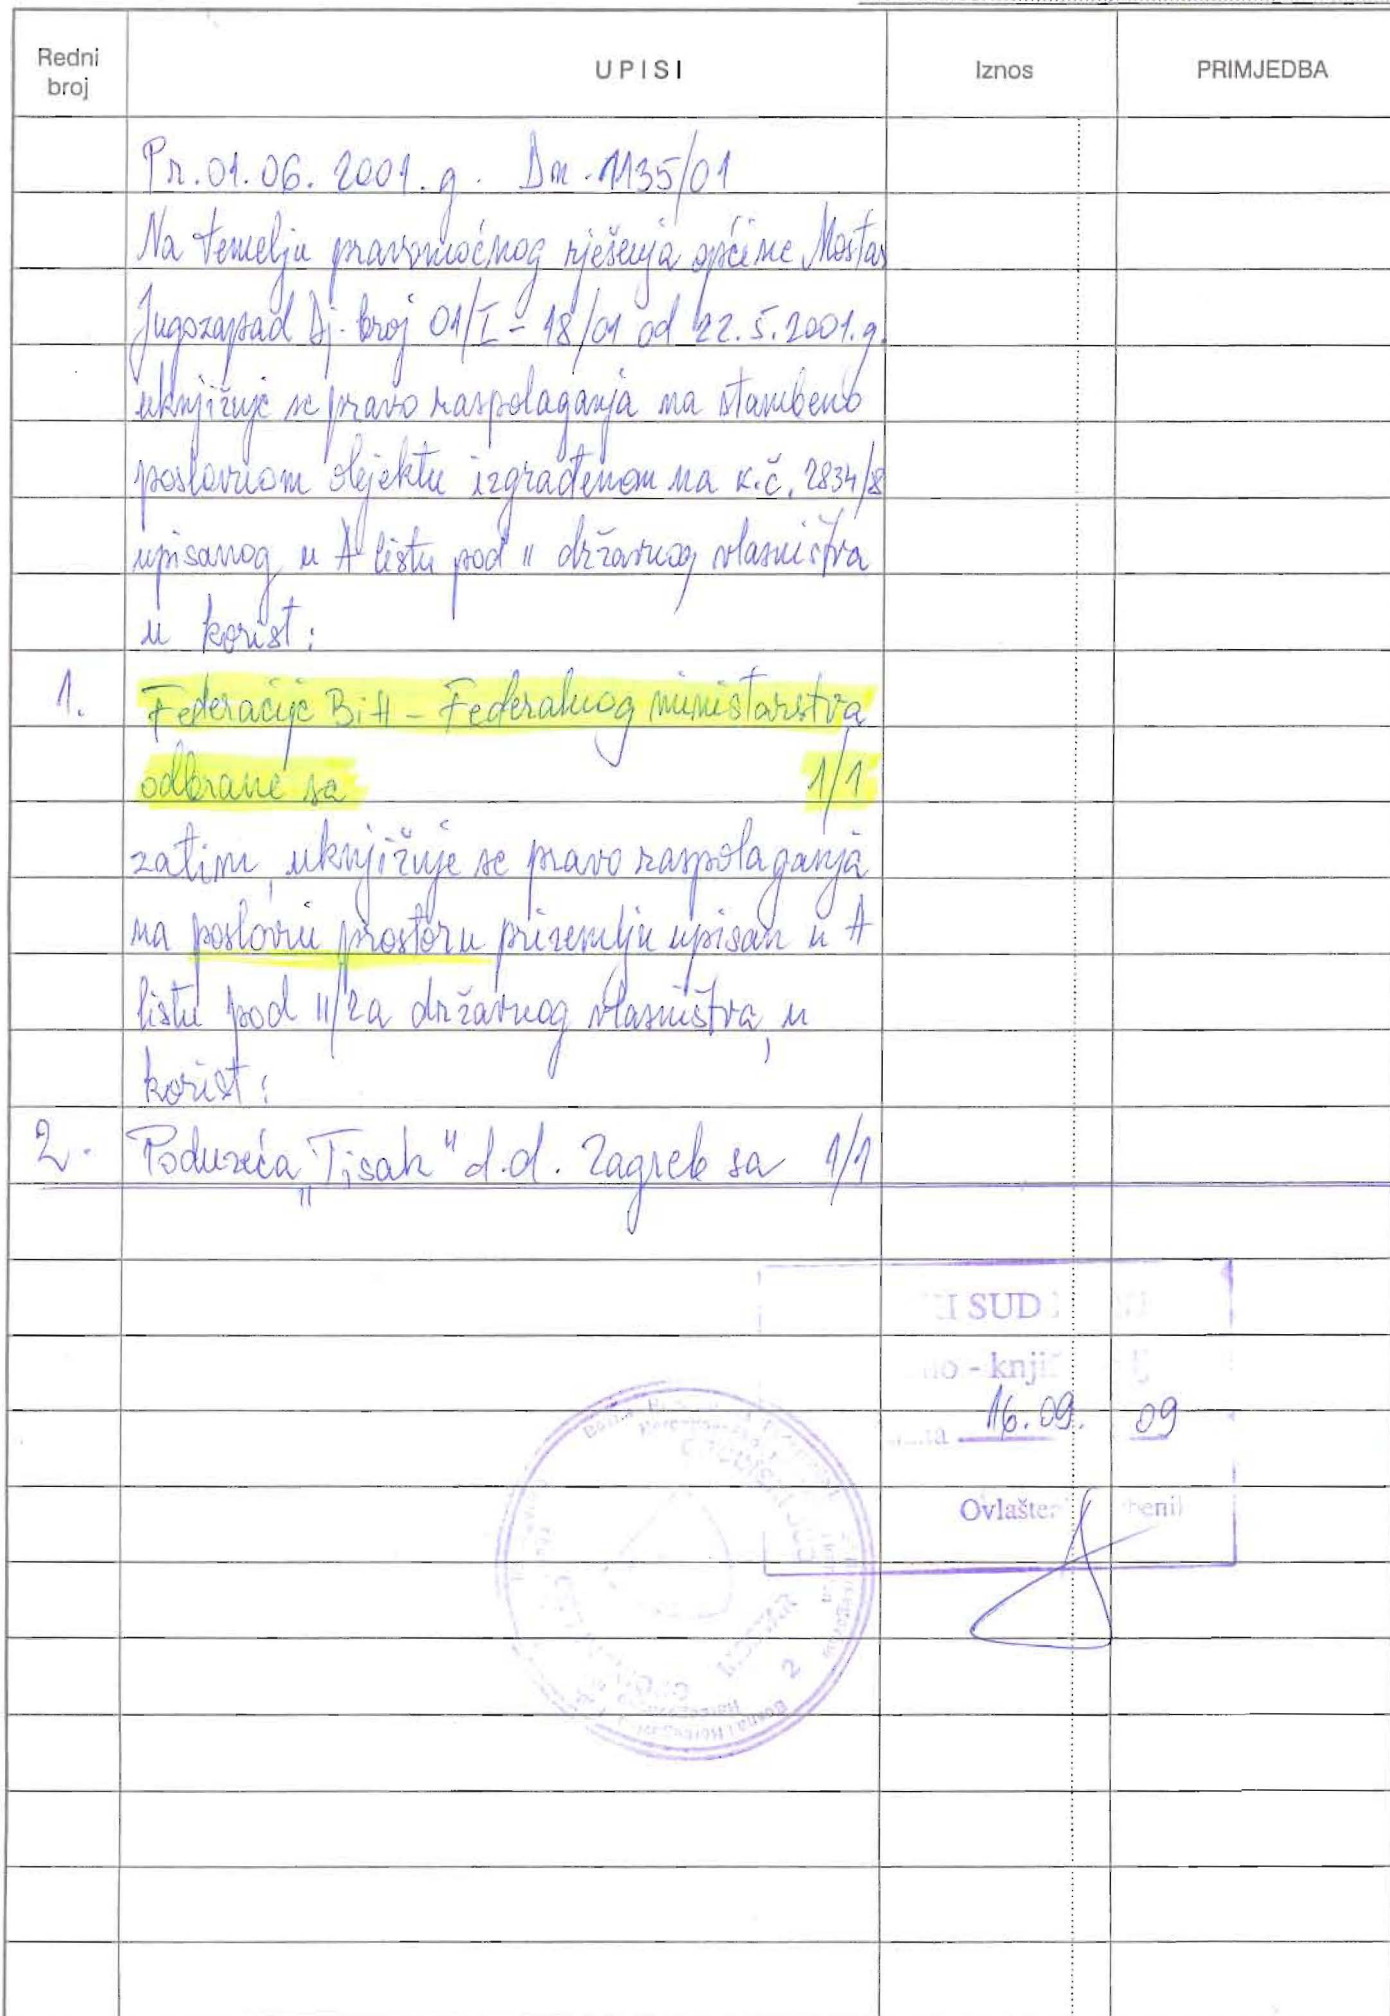 Redni broj
UPISI
Iznos
PRIMJEDBA
Pr. 01.06. 2001. g. Dn - 1135/01
Na temelju pravomoćnog rješenja općine Mostar
Jugozapad Dj. broj 01/I - 18/01 od 22.5.2001.g.
uknjižuje se pravo raspolaganja na stambeno
poslovnom objektu izgrađenom na k.č. 2834/8
upisanog u A listu pod " državnog vlasništva
u korist:
1. Federacije BiH - Federalnog ministarstva
odbrane sa 1/1
zatim, uknjižuje se pravo raspolaganja
na poslovni prostoru prizemlju upisan u A
listu pod 11/2a državnog vlasništva, u
korist:
2. Poduzeća „Tisak" d.d. Zagreb sa 1/1
SUD
- knji
16.09. 09
Ovlašte